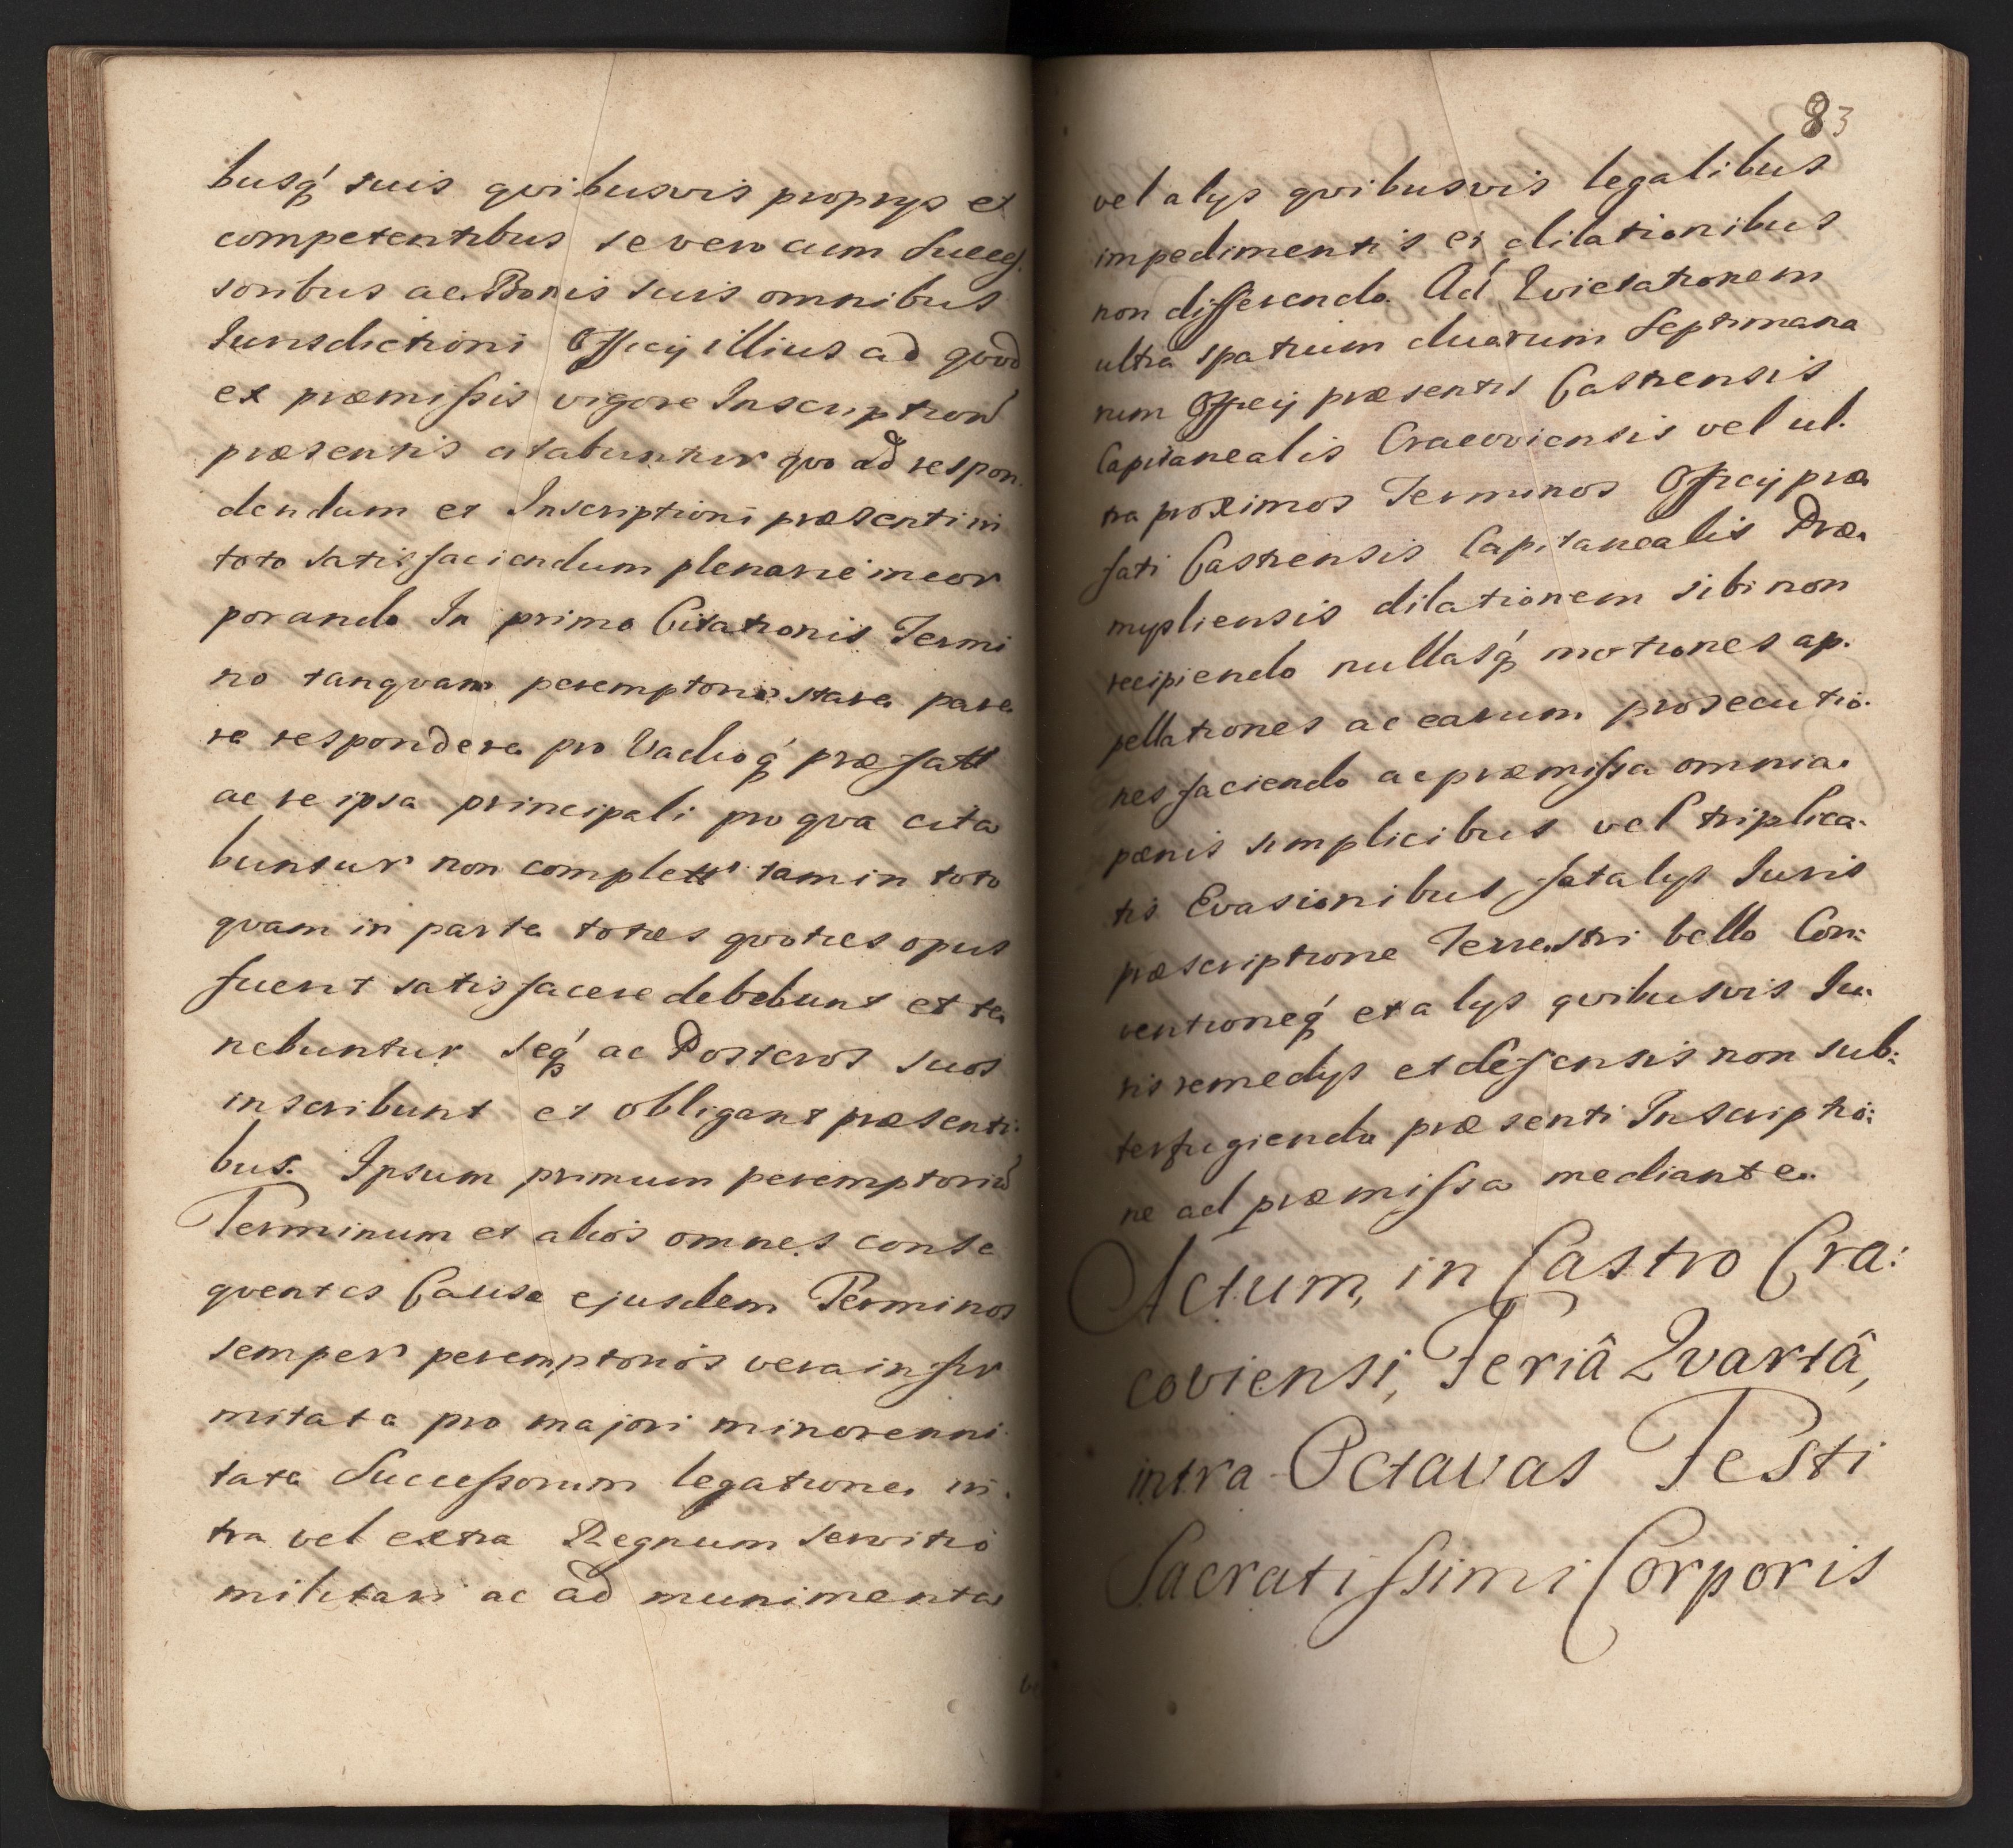 busq́ suis qvibusvis proprys et
competentibus se vero cum Succes.
soribus ac Bonis suis omnibus
Iurisdictioni Officij illius ad qvod
ex præmissis vigore Inscription̄
præsentis citabuntur qvo ad respon.
dendum et Inscriptioni præsenti in
toto satisfaciendum plenarie incor
porando In primo Citationis Termi
no tanqvam peremptorio stare pare
re respondere pro Vadioq́ præfatt
ac re ipsa principali pro qva cita
buntur non complett tam in toto
qvam in parte toties qvoties opus
fuerit satisfacere debebunt et te
nebuntur seq́ ac Posteros suos
inscribunt et obligant præsenti.
bus. Ipsum primum peremptoriū
Terminum et alios omnes conse
qventes Causæ ejusdem Terminos
semper peremptorios vera infir
mitate pro majori minorenni
tate Successorum legatione in.
tra vel extra Regnum servitio
militari ac ad munimenta
83
vel alys qvibusvis legalibus
impedimentis et dilationibus
non differendo. Ad Evictationem
ultra spatium duarum Septimana
rum Officij præsentis Castrensis
Capitanealis Cracoviensis vel ul.
tra proximos Terminos Officij præ
fati Castrensis Capitanealis Præ
mysliensis dilationem sibi non
recipiendo nullasq́ motiones ap.
pellationes ac earum prosecutio.
nes faciendo ac præmissa omnia
pœnis simplicibus vel triplica.
tis Evasionibus fatalys Iuris
præscriptione Terrestri bello Con:
ventioneq́ et alys qvibusvis Iu.
ris remedys et defensis non sub:
terfugiendo præsenti Inscriptio:
ne ad præmissa mediante.
Actum, in Castro Cra:
coviensi, Feriâ Qvartâ,
intra Octavas Festi
Sacratissimi Corporis